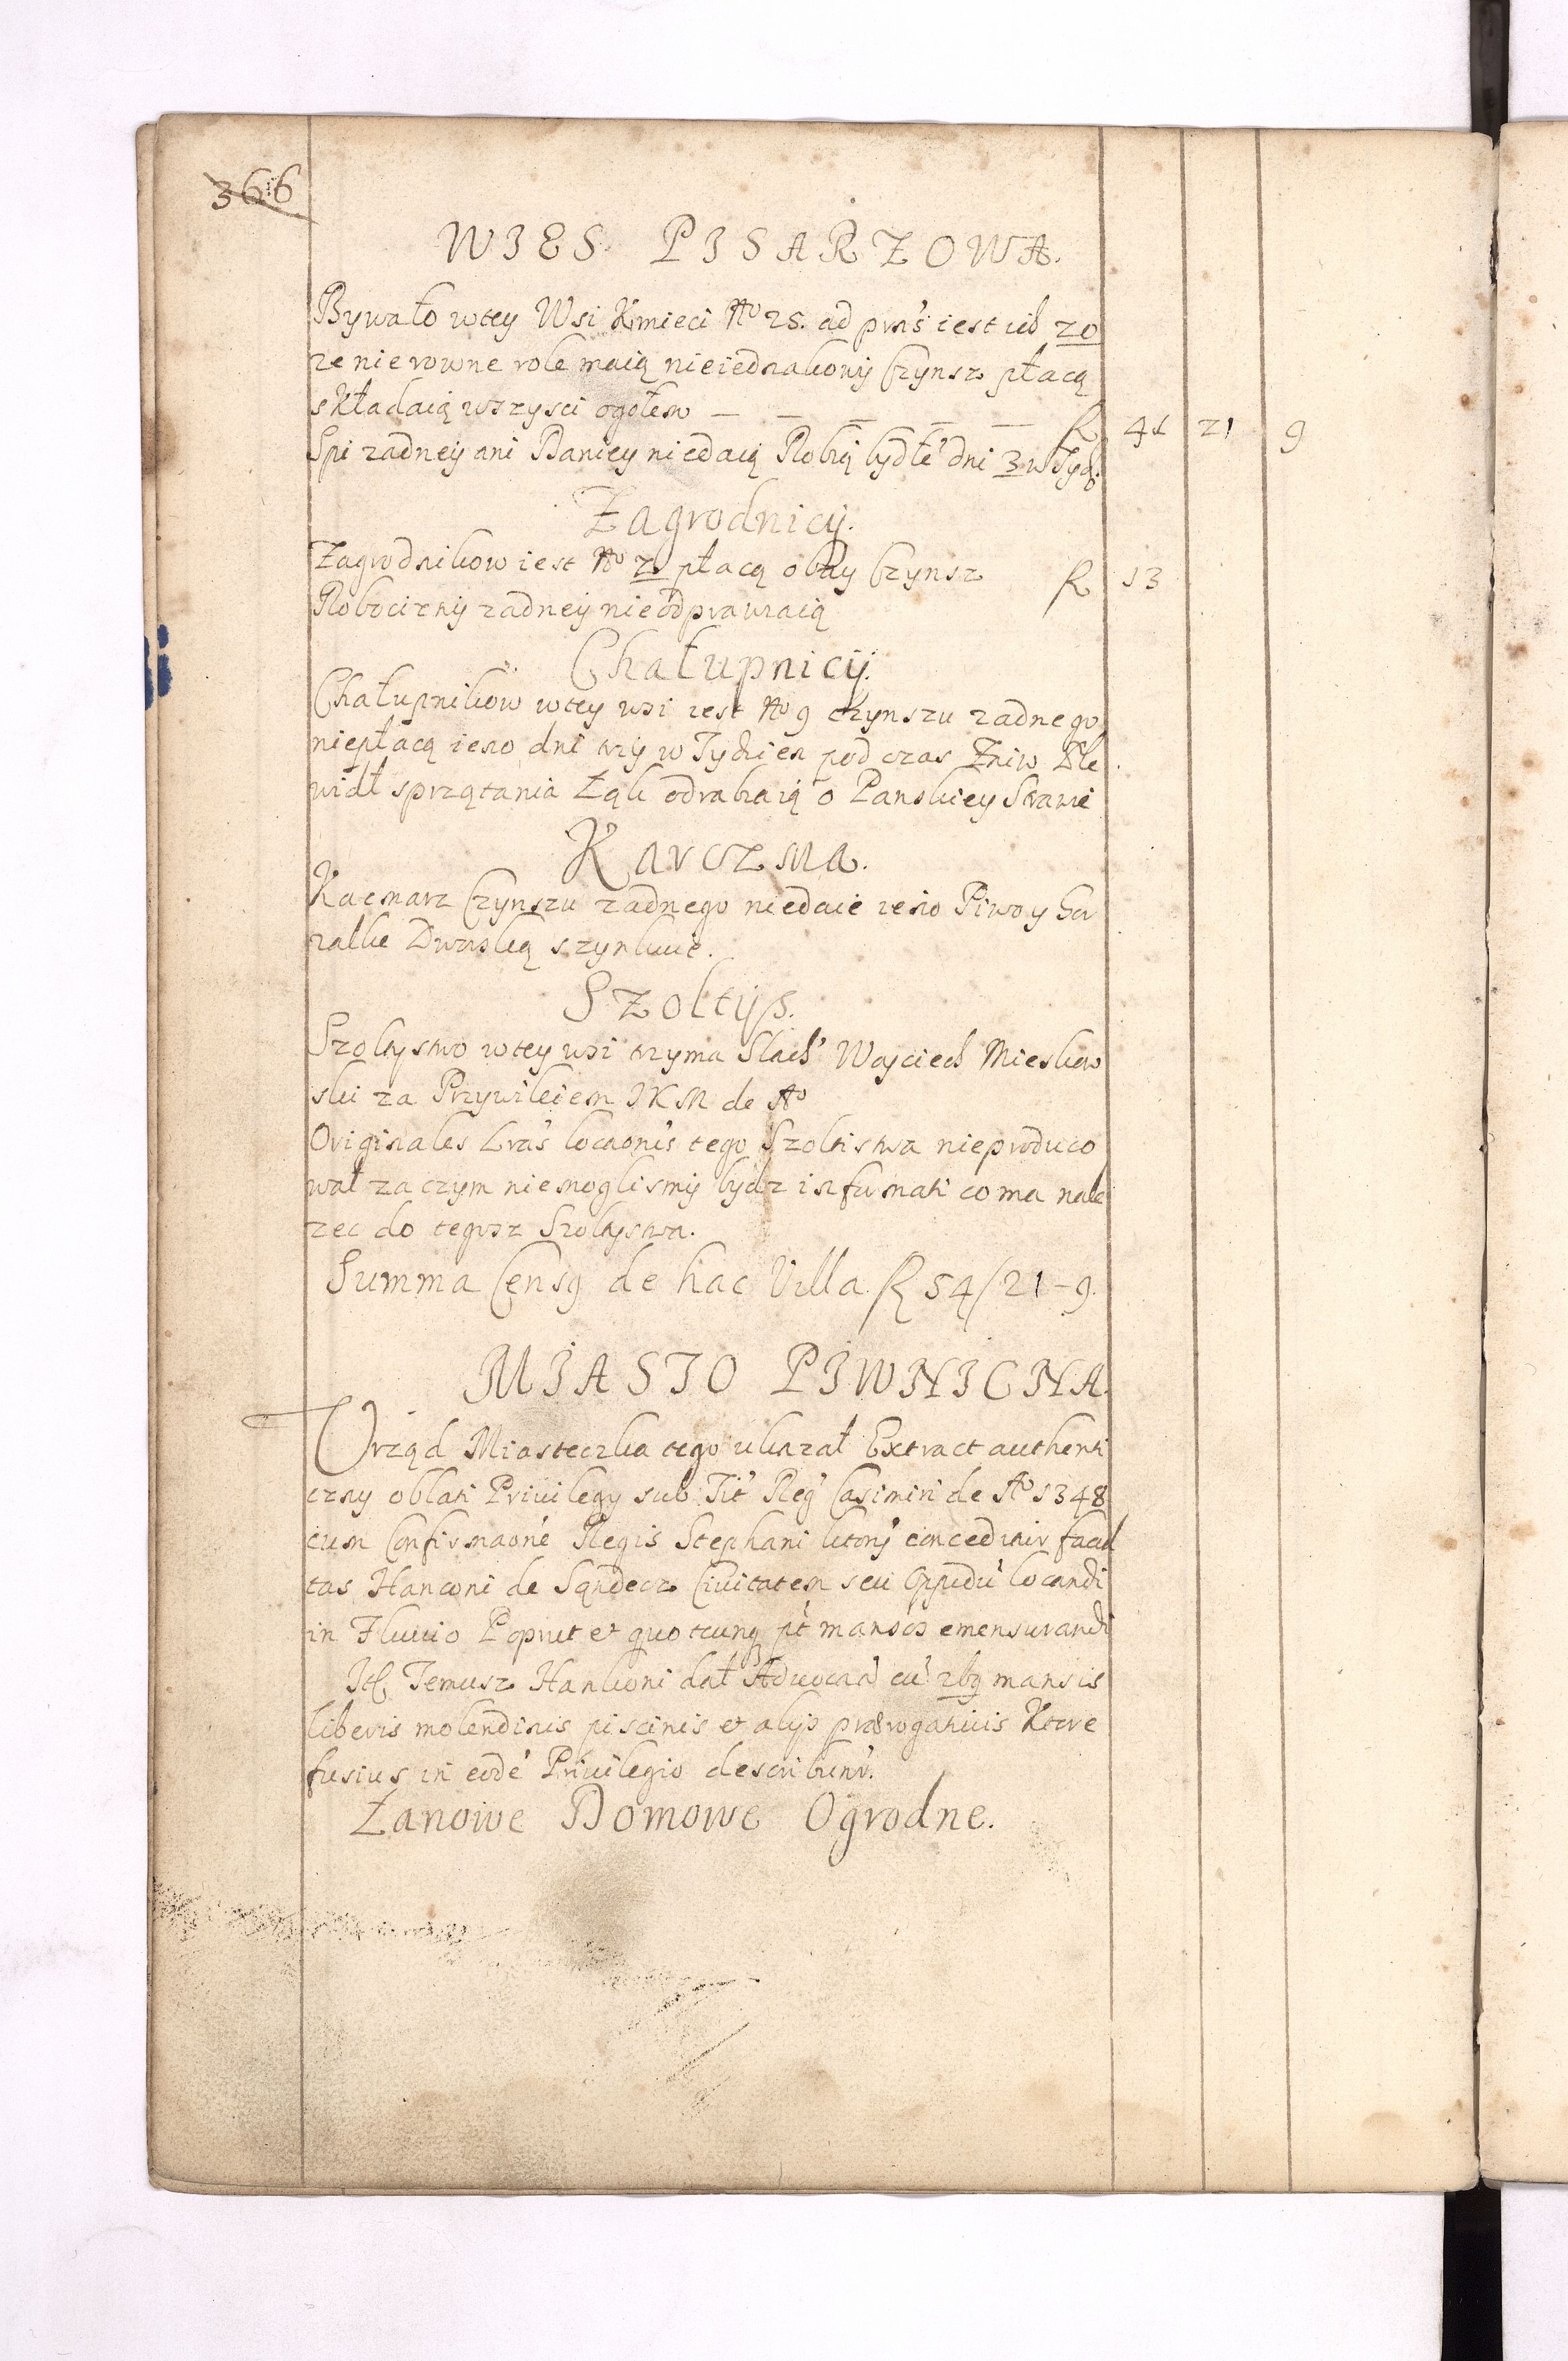 366
WIES PISARZOWA.
Bywało wtey Wsi Kmieci No 25. ad pns iest ich 20
ze nierowne role maią nieiednakowy Czynsz płacą
składaią wszysci ogołem — — — — — R 41 21 9
Spi zadney ani Daniey niedaią Robią bydłe' dni 3 w Tyd:
Zagrodnicy.
Zagrodnikow iest No 2 płacą obay Czynsz R 13
Robocizny zadney nieodprawuią
Chałupnicy.
Chałupnikow wtey wsi iest No 9 czynszu zadnego
niepłacą ieno dni trzy w Tydzien pod czas Zniw
sprzątania Łąk odrabiaią o Panskiey Strawie
Karczma.
Kacmarz Czynszu zadnego niedaie ieno Piwo y Go
rzałke Dworską szynkuie.
Szoltys.
Szoltystwo wtey wsi trzyma Slach' Woyciech Mieskow
ski za Przywileiem JKM de Ao
Originales Lras locaonis tego Szoltistwa nieproduco
wał zaczym niemoglismy bydz informati co ma nale
zec do tegosz Szoltystwa.
Summa Censq de hac Villa R 54/21-9.
MIASTO PIWNICNA.
Vrząd Miasteczka tego ukazał Extract authenti
czny oblati Privilegy sub Tit' Reg' Casimiri de Ao 1348
cum Confirmaone Regis Stephani ktory conceditur facul
tas Hanconi de Sandecz Civitatem seu Oppidu' locandi
in Fluvio Poprut et quotcunq pt mansos emensurandi
Temusz Hankoni dał Advocaa' cu' 2bq mansis
liberis molendinis piscinis et alys prærogativis Ktore
fusius in eode' Privilegio describunt'.
Łanowe Domowe Ogrodne.